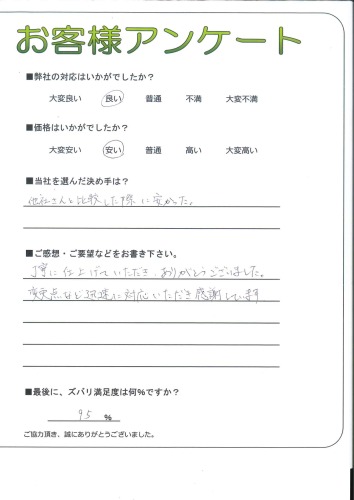 お客様アンケート
■弊社の対応はいかがでしたか？
大変良い 良い 普通 不満 大変不満
■価格はいかがでしたか？
大変安い 安い 普通 高い 大変高い
■当社を選んだ決め手は？
他社さんと比較した際に安かった。
■ご感想・ご要望などをお書き下さい。
丁寧に仕上げていただき、ありがとうございました。
変更点など迅速に対応いただき感謝しています
■最後に、ズバリ満足度は何％ですか？
95 ％
ご協力頂き、誠にありがとうございました。